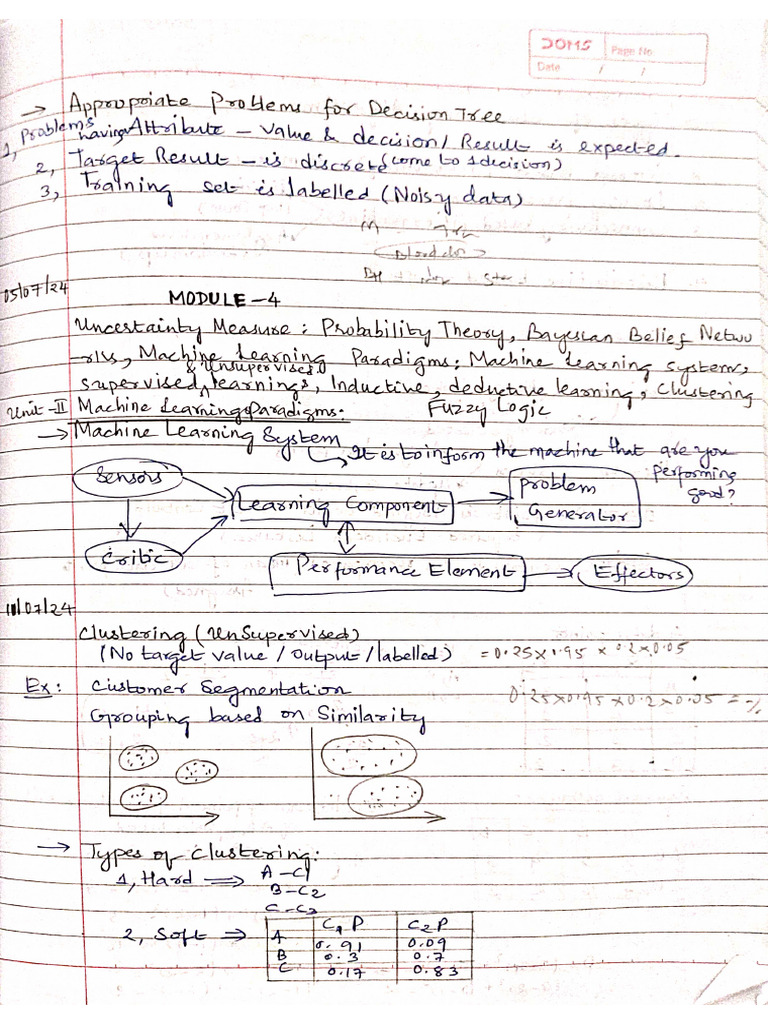 DOMS
Page No.
Date / /
→ Appropriate Problems for Decision Tree
1, Problems having Attribute - Value & decision / Result is expected.
2, Target Result - is discrete (come to 1 decision)
3, Training set is labelled (Noisy data)
05/07/24
MODULE-4
Uncertainty Measure: Probability Theory, Bayesian Belief Netwo
-rks, Machine Learning Paradigms: Machine Learning systems,
supervised & Unsupervised learnings, Inductive, deductive learning, Clustering
Unit-II Machine Learnings Paradigms: Fuzzy Logic
→ Machine Learning System
It is to inform the machine that are you performing good?
Sensors
Learning Component
Problem Generator
Critic
Performance Element
Effectors
11/07/24
Clustering (UnSupervised)
(No target value / output / labelled) = 0.25x1.95 x 0.2x0.05
Ex: Customer Segmentation
0.25x0.95x0.2x0.05 =
Grouping based on Similarity
→ Types of clustering:
1, Hard → A-C1
B-C2
C-C2
2, Soft →
C1 P C2 P
A 0.91 0.09
B 0.3 0.7
C 0.17 0.83